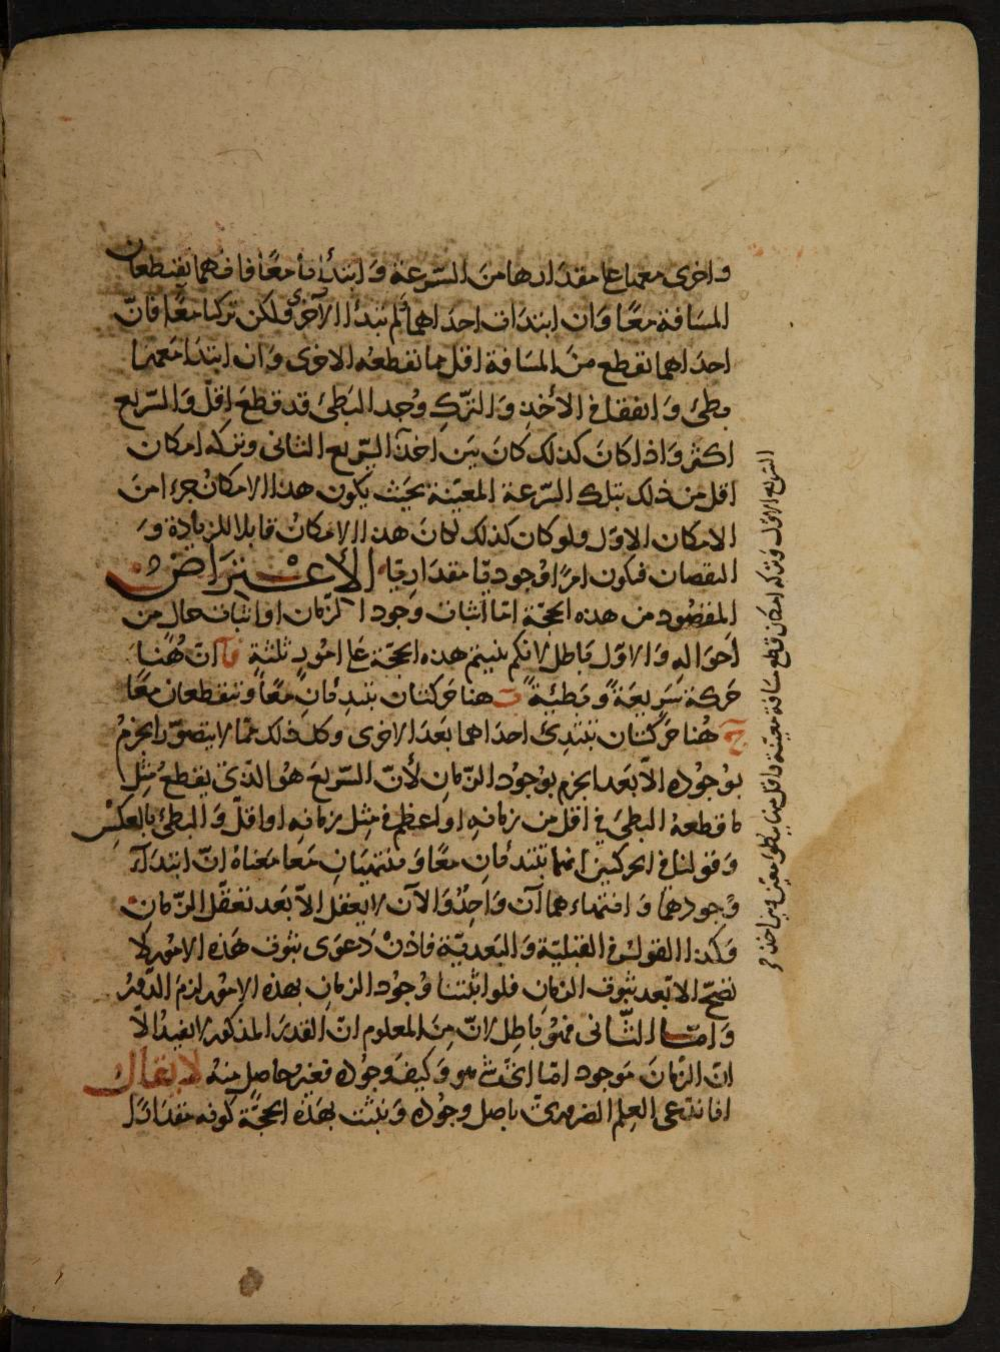 واخرى معها على مقدارها من السرعة وابتدأتا معا فانهما يقطعان
المسافة معا وان ابتدأت احداهما ولم تبتدأ الاخرى ولكن تركتا معا فان
احداهما تقطع من المسافة اقل مما تقطعه الاخرى وان ابتدا معهما
بطئ واتفقا في الأخذ والترك وُجد البطئ قد قطع اقل والسريع
اكثر واذا كان كذلك كان بين اخذ السريع الثاني وتركه امكان
اقل من ذلك بتلك السرعة المعينة بحيث يكون هذا الامكان جزءا من
الامكان الاول ولو كان كذلك لكان هذا الامكان قابلا للزيادة و
النقصان فيكون امرًا وجوديًا مقداريًا الاعتراض
المقصود من هذه الحجة اما اثبات وجود الزمان او اثبات حال من
احواله والاول باطل لانكم بنيتم هذه الحجة على امور ثلثة آ ان هُنا
حركة سريعة وبطئة ب هنا حركتان تبتدئان معًا وتنقطعان معًا
ج هُنا حركتان تبتدئ احداهما بعد الاخرى وكل ذلك مما لا يتصور الجزمُ
بوجوده الا بعد الجزم بوجود الزمان لأن السريع هو الذي يقطع مثل
ما قطعه البطئ في اقل من زمانه او اعظم في مثل زمانه او اقل والبطئ بالعكس
وقولنا في الحركتين انهما تبتدئان معًا وتنتهيان معا معناه ان ابتداء
وجودهما وانتهاءهما آن واحد والآن لا يعقل الا بعد تعقل الزمان
وكذا القول في القبلية والبعدية فاذن دعوى ثبوت هذه الامور لا
تصح الا بعد ثبوت الزمان فلو اثبتنا وجود الزمان بهذه الامور لزم الدور
واما الثاني فهو باطل لان من المعلوم ان القدر المذكور لا يفيد الا
ان الزمان موجود اما انه اي شئ هو وكيف وجوده فغير حاصل منه لا يقال
انا ندعي العلم الضروري باصل وجوده ونثبت بهذه الحجة كونه مقدارًا
السريع الاول وتركه امكان قطع مسافة معينة واقل منها ببطؤ معين وبين اخذ